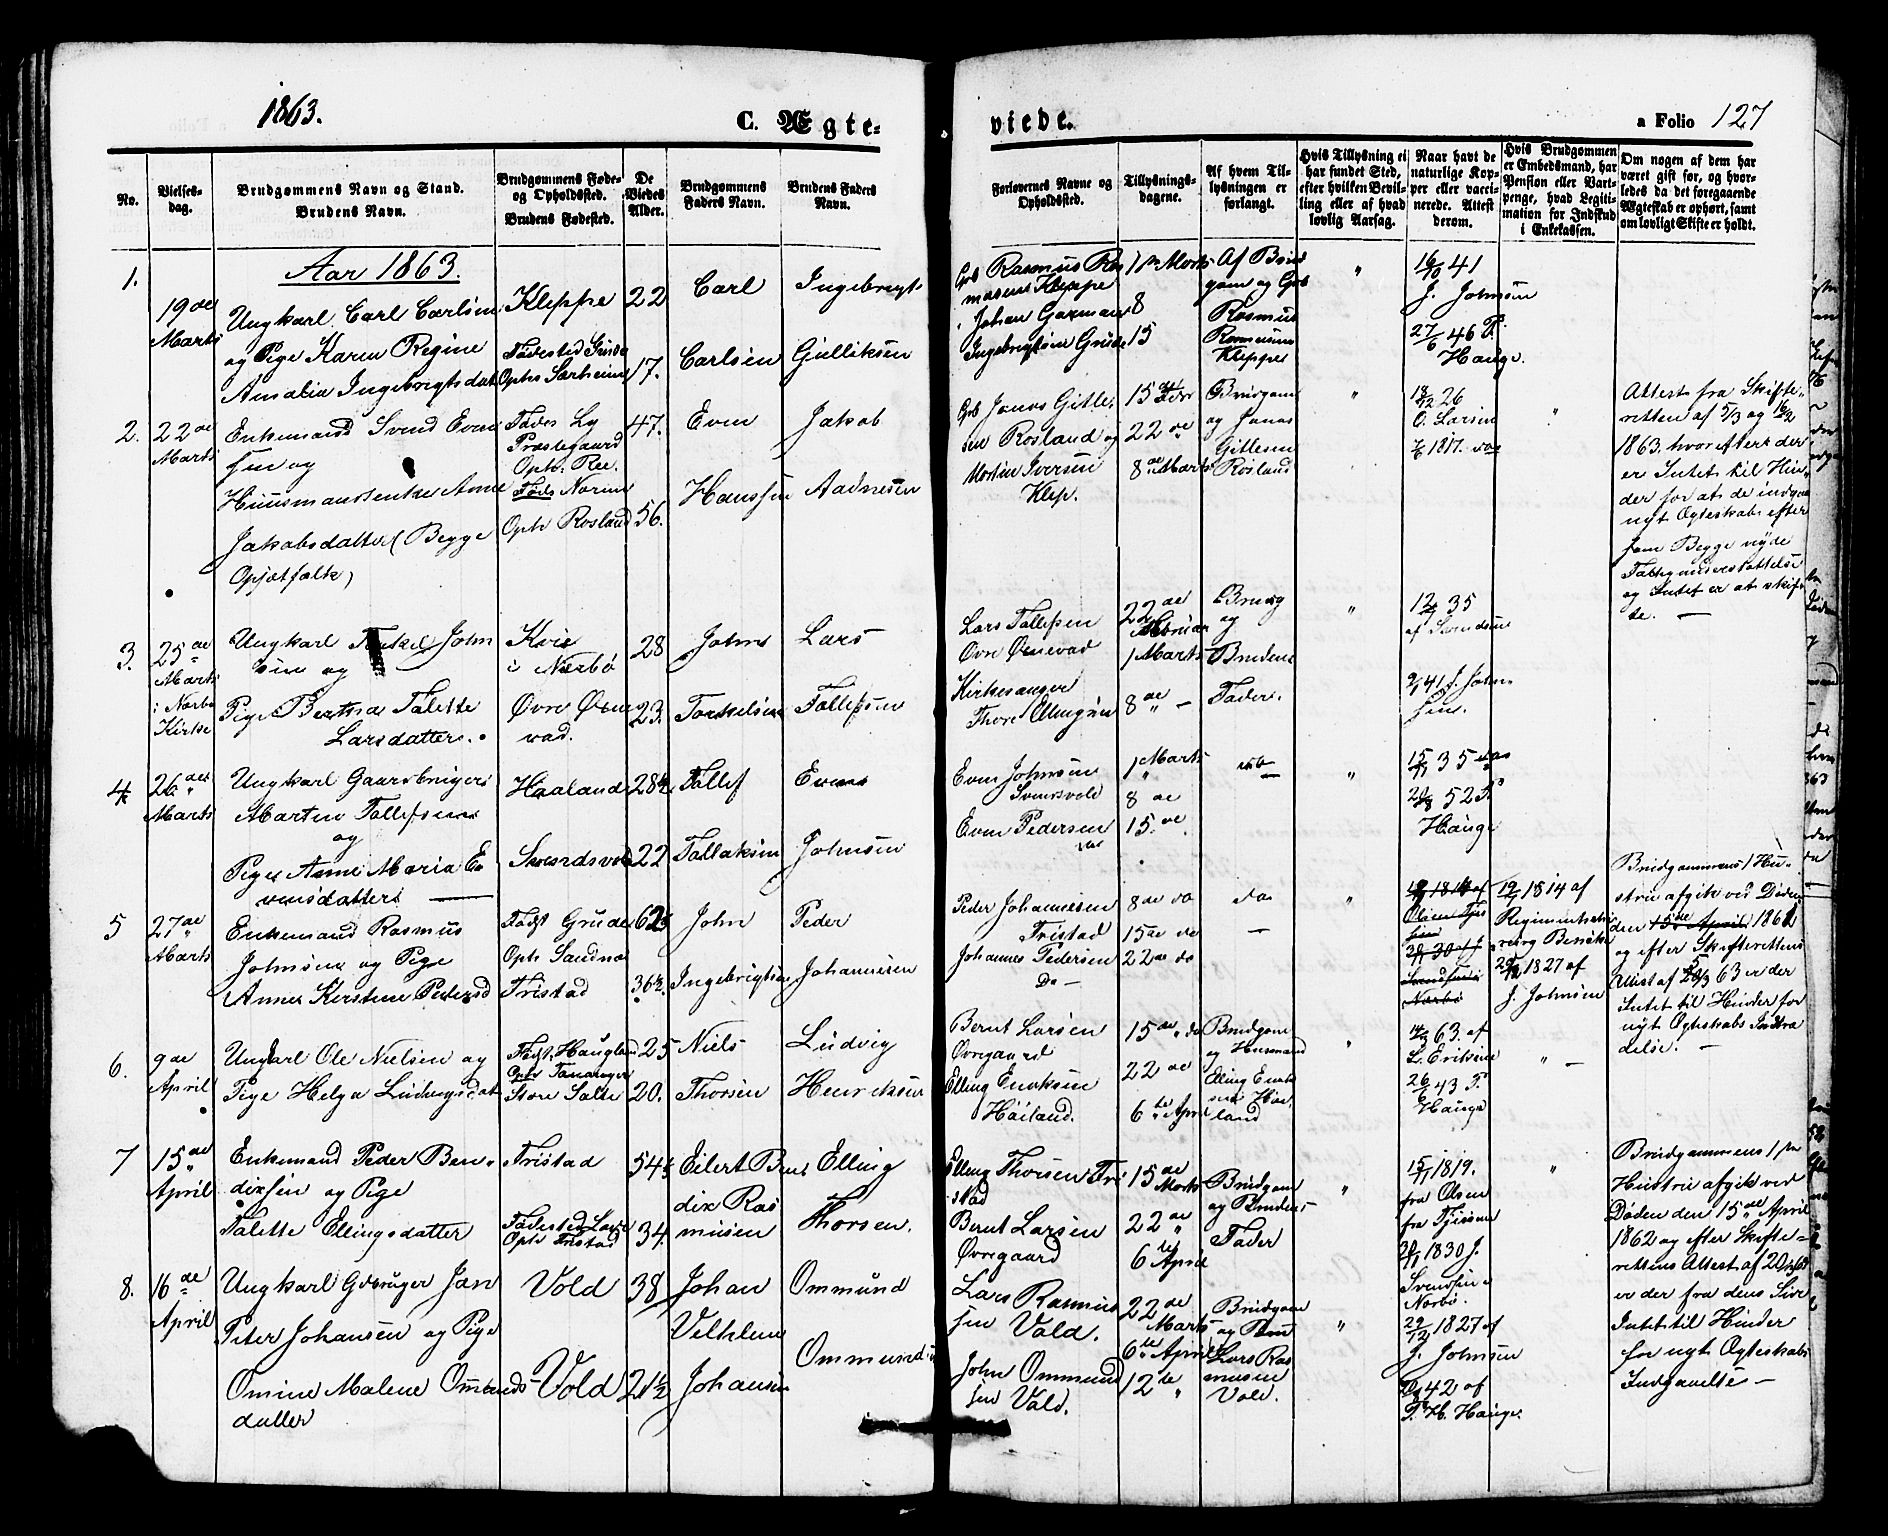 1863.
C. Ægte-
viede.
a Folio 127
No.
Vielses-
dag.
Brudgommens Navn og Stand.
Brudens Navn.
Brudgommens Føde-
og Opholdssted.
Brudens Fødested.
De
Viedes
Alder.
Brudgommens
Faders Navn.
Brudens Faders
Navn.
Forlovernes Navne og
Opholdssted.
Tillysnings-
dagene.
Af hvem Til-
lysningen er
forlangt.
Hvis Tillysning ei
har fundet Sted,
efter hvilken Bevil-
ling eller af hvad
lovlig Aarsag.
Naar havt de
naturlige Kop-
per eller vacci-
nerede. Attest
derom.
Hvis Brudgommen
er Embedsmand, har
Pension eller Vart-
penge, hvad Legiti-
mation for Indskud
i Enkekassen.
Om nogen af dem har
været gift før, og hvor-
ledes da det foregaaende
Ægteskab er ophørt, samt
om lovligt Skifte er holdt.
Aar 1863.
1.
19de
Marts
Ungkarl Carl Carlsen
og Pige Karen Regine
Amalia Ingebrigtsdat
Kleppe
Fødested Grude
Ophs Særheim
22
17.
Carl
Carlsen
Ingebrigt
Gulliksen
Grb Rasmus Ras
musen Kleppe
Johan Garman
Ingebrigtsen Grude
1ste Marts
8
15
Af Brud
gom og Grb
Rasmus
Rasmusen
Kleppe
"
16/10 41
J. Johnsen
27/6 46 P.
Hauge.
2.
22de
Marts
Enkemand Svend Even
sen og
Huusmandsenke Anne
Jakobsdatter (Begge
Fødes Ly
Præstegaard
Opht: Ree.
Føds Nærim
Opht Rosland
47.
56.
Even
Hanssen
Jakob
Aadnesen
Grb Jonas Gitle
sen Rosland og
Morten Iversen
Klep.
15 Febr
22de
8de Marts
Brudgom
og Jonas
Gitlesen
Rosland
"
26
O. Larsen
1817. do
"
Attest fra Skifte-
retten af 5/3 og
1863. hvorefter der
er Intet til Hin
der for at de indgaa
nyt Ægteskab efter
som Begge nyde
Fattigunderstøttelse
og Intet er at skif
te. —
3.
25de
Marts
i Nærbø
Kirke
Ungkarl Torkel John
sen og
Pige Bertha Talette
Larsdatter.
Kvie
i Nærbø
Øvre Ørne
vad.
28
23.
John
Torkelsen
Lars
Tollefsen
Lars Tollefsen
Øvre Ørnevad
Kirkesanger
Thore Ellingsen
22de
Februar
1 Marts
8de " —
Brudg
og
Brudens
Fader.
"
35
af Svendsen
41 J. John
sen.
4
26de
Marts
Ungkarl Gaardbruger
Marten Tollefsen
og
Pige Anne Maria E
vensdatter —
Haaland
Sværdsvold
28½
22
Tollef
Tollaksen
Even
Johnsen
Even Johnsen
Sværsvold
Even Pedersen
1 Marts
8de
15.de
do
—
"
35 do
52 P.
Hauge
5
27de
Marts
Enkemand Rasmus
Johnsen og Pige
Anne Kerstine Pedersd
Fødst Grude
Opht Sandnæs
Tristad
62½
36½.
John
Ingebrigtsen
Peder
Johannesen
Peder Johannesen
Tristad
Johannes Pedersen
Do —
8de do
15de do
22de do
do
—
"
19/7 1814 af
Regiments
1827 af
J. Johnsen
Brudgommens 1 Hu-
stru afgik ved Døden
den 15de April 1861
og efter Skifterettens
Attest af 63 er der
Intet til Hinder for
nyt Ægteskabs Indtræ
delse. —
6.
9de
April
Ungkarl Ole Nielsen og
Pige Helga Ludvigsdat
Født. Haugland
Opht Tananger
Store Salte
25
20.
Niels
Thorsen
Ludvig
Henriksen
Bernt Larsen
Øvregaard
Elling Eriksen
Høiland.
15de do
22de
6te April
Brudgom
og Husmand
Elling Erik
sen Høi
land
"
63. af
L. Eriksen
26/6 43 P.
Hauge
" —
7
15de
April
Enkemand Peder Ben-
dixsen og Pige
Talette Ellingsdatter
Tristad
Opht Tristad
54½
34.
Eilert Ben
dix Ras
musen
Elling
Thorsen.
Elling Thorsen Tri
stad
Bernt Larsen
Øvregaard
15de
Marts
22de "
6te
April
Brudgom
og Brudens
Fader
"
15/11 1819.
fra Olsen
fra Tjessem
1830 J.
Svendsen
Nærbø.
"
Brudgommens 1ste
Hustru afgik ved
Døden den 15de April
1862 og efter Skifte-
rettens Attest af
er der fra dens Side
Intet til Hinder
for nyt Ægteskabs
Indgaaelse —
8.
16de
April
Ungkarl Gbruger Jan
Peter Johansen og Pige
Omine Malene Ommunds
datter
Vold
Vold
38
21½
Johan
Velhlem
Johansen
Ommund
Ommunds
Lars Rasmus
sen Vold.
John Ommund
sen Vold.
22de
Marts
6te April
12te "
Brudgom
og Bru
Lars Ras
musen
Vold.
"
29/12 1827 af
J. Johnsen
42 af
P. H. Hauge.